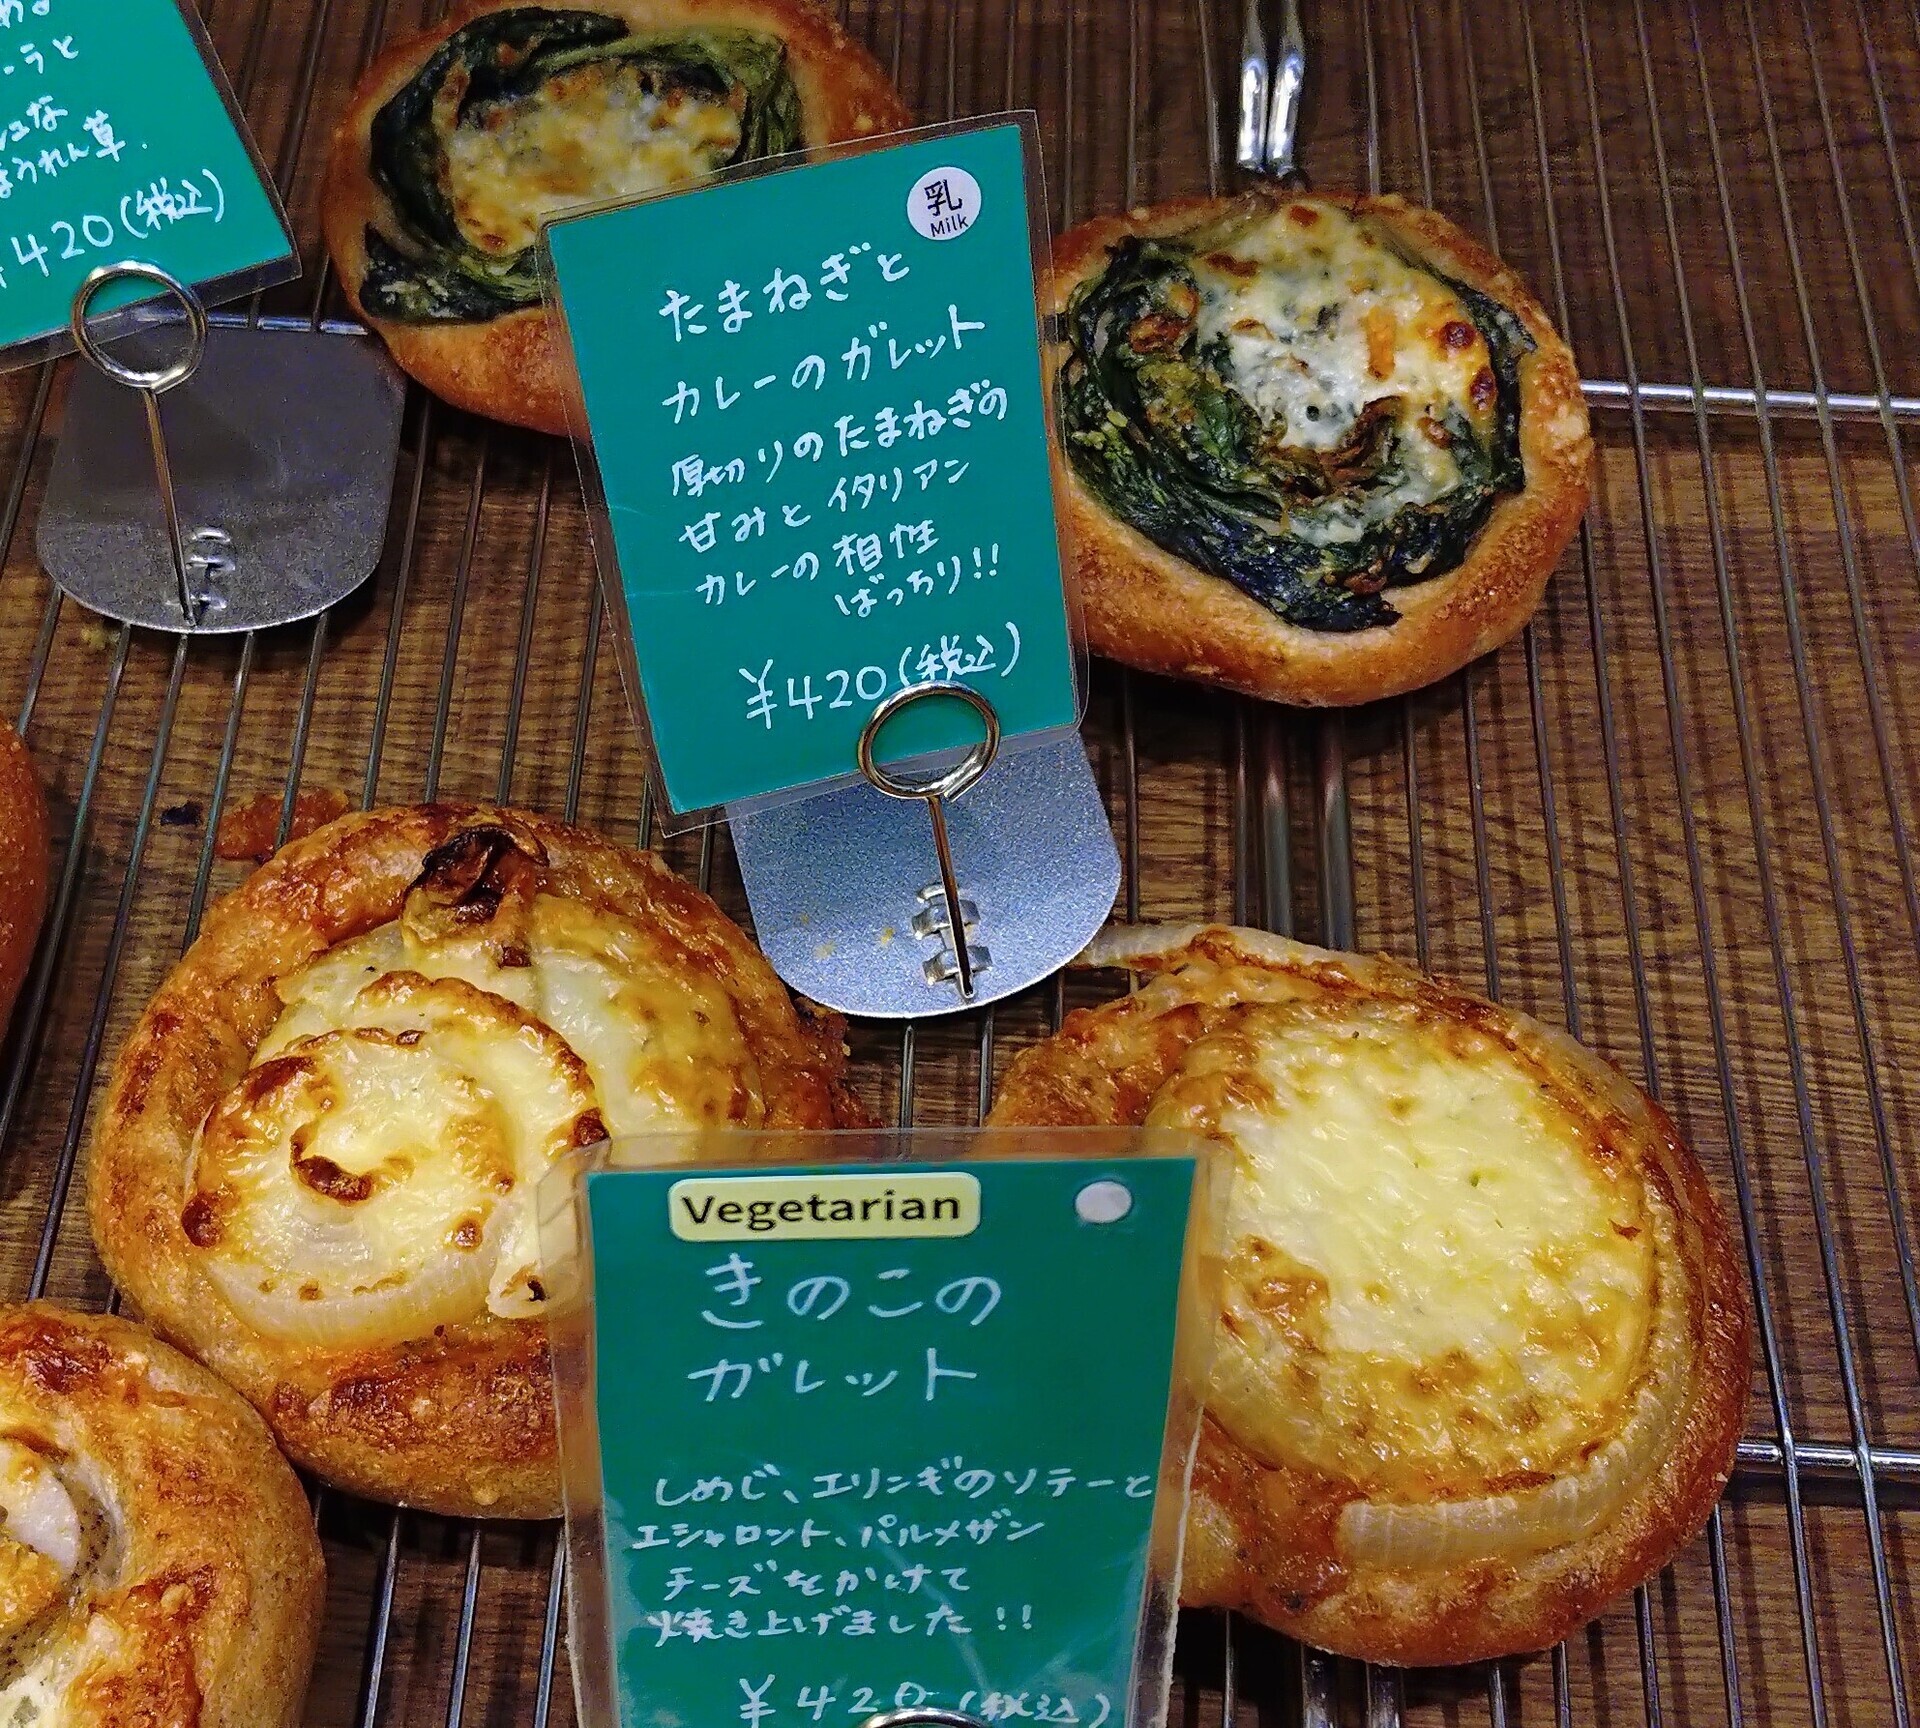 ラと
な
ほうれん草.
¥420(税込)
乳
Milk
たまねぎと
カレーのガレット
厚切りのたまねぎの
甘みとイタリアン
カレーの相性
ばっちり!!
¥420(税込)
Vegetarian
きのこの
ガレット
しめじ、エリンギのソテーと
エシャロット、パルメザン
チーズをかけて
焼き上げました!!
¥420(税込)